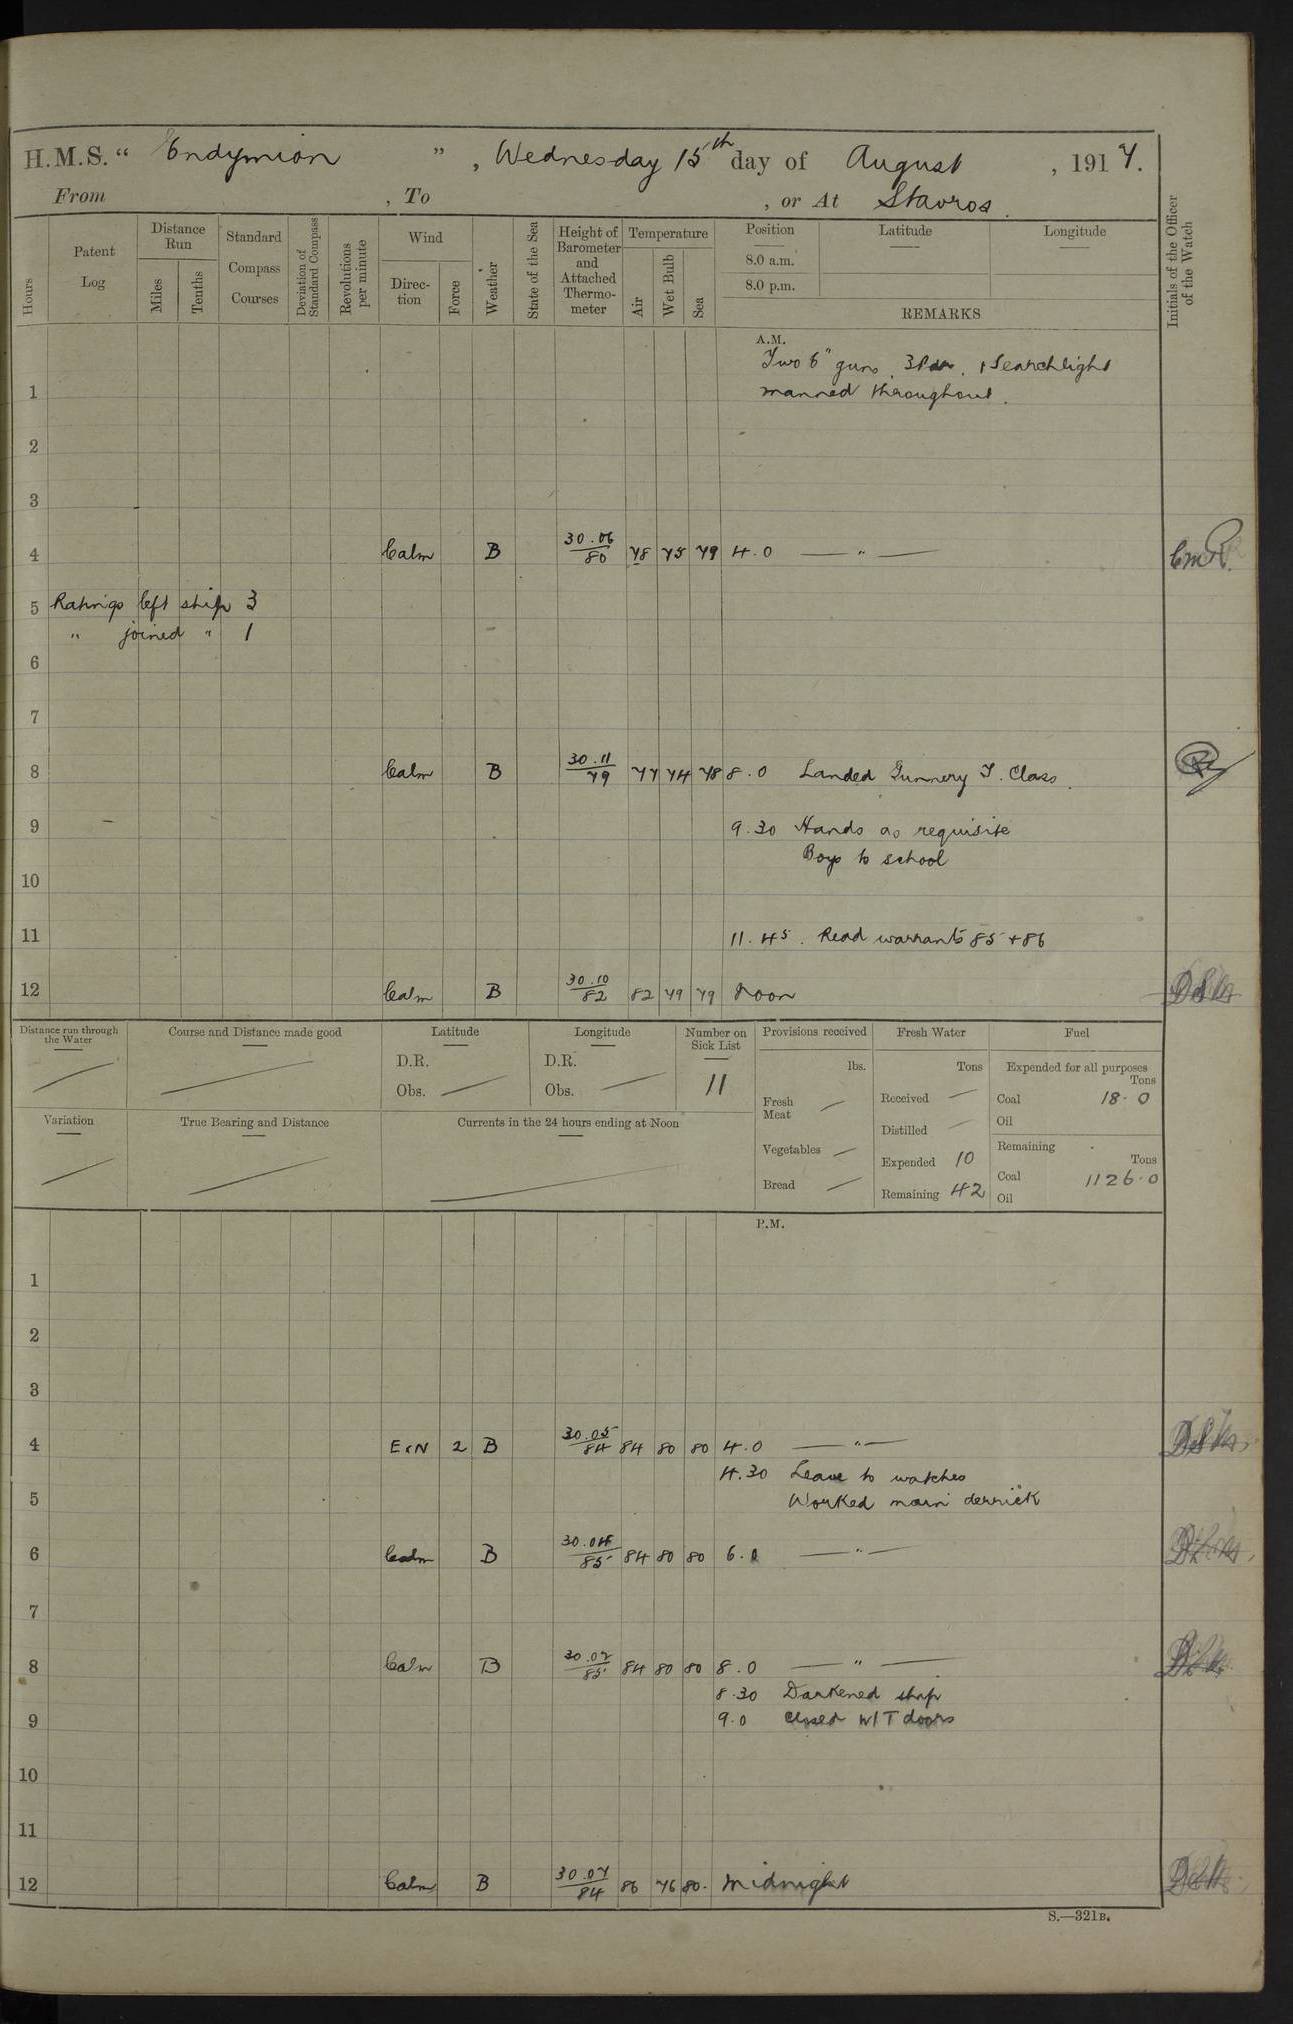 H.M.S. “ Endymion ” , Wednesday 15th day of August , 1917.
From , To , or At Stavros.
Hours
Patent Log
Distance Run
Miles
Tenths
Standard Compass Courses
Deviation of Standard Compass
Revolutions per minute
Wind
Direction
Force
Weather
State of the Sea
Height of Barometer and Attached Thermometer
Temperature
Air
Wet Bulb
Sea
Position
8.0 a.m.
8.0 p.m.
Latitude
Longitude
REMARKS
Initials of the Officer of the Watch
A.M.
Two 6" guns, 3 Pdr. + Searchlight
1 manned throughout.
2
3
4 Calm B 30.06/80 78 75 79 4.0 — " —
5 Ratings left ship 3
" joined " 1
6
7
8 Calm B 30.11/79 77 74 78 8.0 Landed Gunnery T. Class.
9 9.30 Hands as requisite
Boys to school
10
11 11.45. Read warrants 85 + 86
12 Calm B 30.10/82 82 79 79 Noon
Distance run through the Water
Course and Distance made good
Latitude
D.R.
Obs.
Longitude
D.R.
Obs.
Number on Sick List
11
Provisions received
lbs.
Fresh Meat
Vegetables
Bread
Fresh Water
Tons
Received
Distilled
Expended 10
Remaining 42
Fuel
Expended for all purposes
Tons
Coal 18.0
Oil
Remaining
Tons
Coal 1126.0
Oil
Variation
True Bearing and Distance
Currents in the 24 hours ending at Noon
P.M.
1
2
3
4 ExN 2 B 30.05/84 84 80 80 4.0 — " —
4.30 Leave to watches
5 Worked main derrick
6 Calm B 30.04/85 84 80 80 6.0 — " —
7
8 Calm B 30.07/85 84 80 80 8.0 — " —
8.30 Darkened ship
9 9.0 Closed W/T doors
10
11
12 Calm B 30.07/84 86 76 80. Midnight
S.—321B.